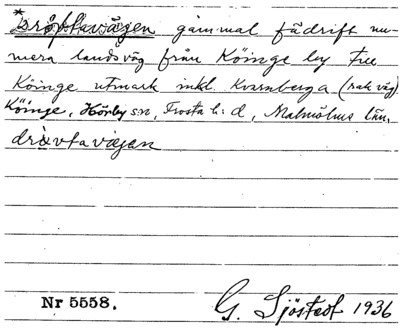 *Dröftavägen gammal fädrift nu-
mera landsväg från Köinge by till
Köinge utmark inkl Kvarnberga (rak väg)
Köinge, Hörby sn, Frosta h:d, Malmöhus län,
dròvtavägen
Nr 5558. G. Sjöstedt 1936